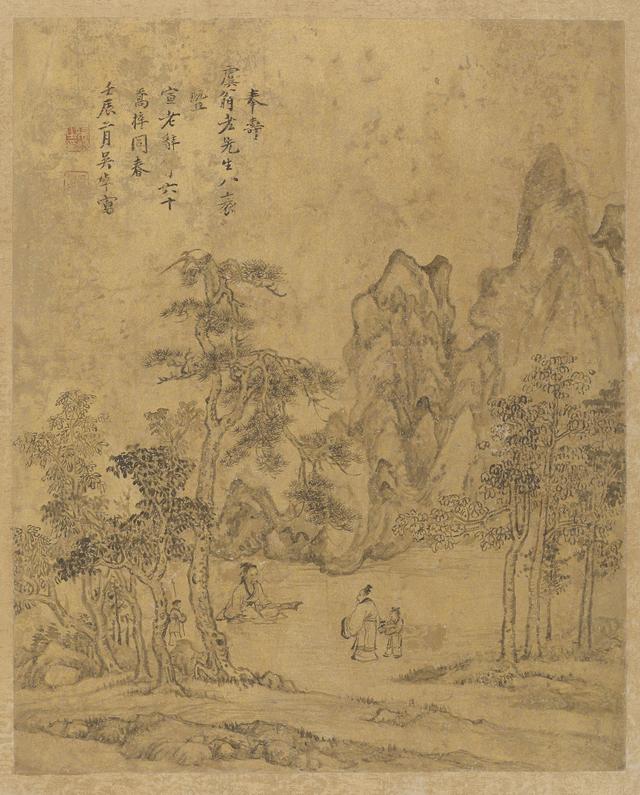 奉壽
虞翁老先生八袠
暨
宣老
六十
喬梓同春
壬辰二月吳
寫